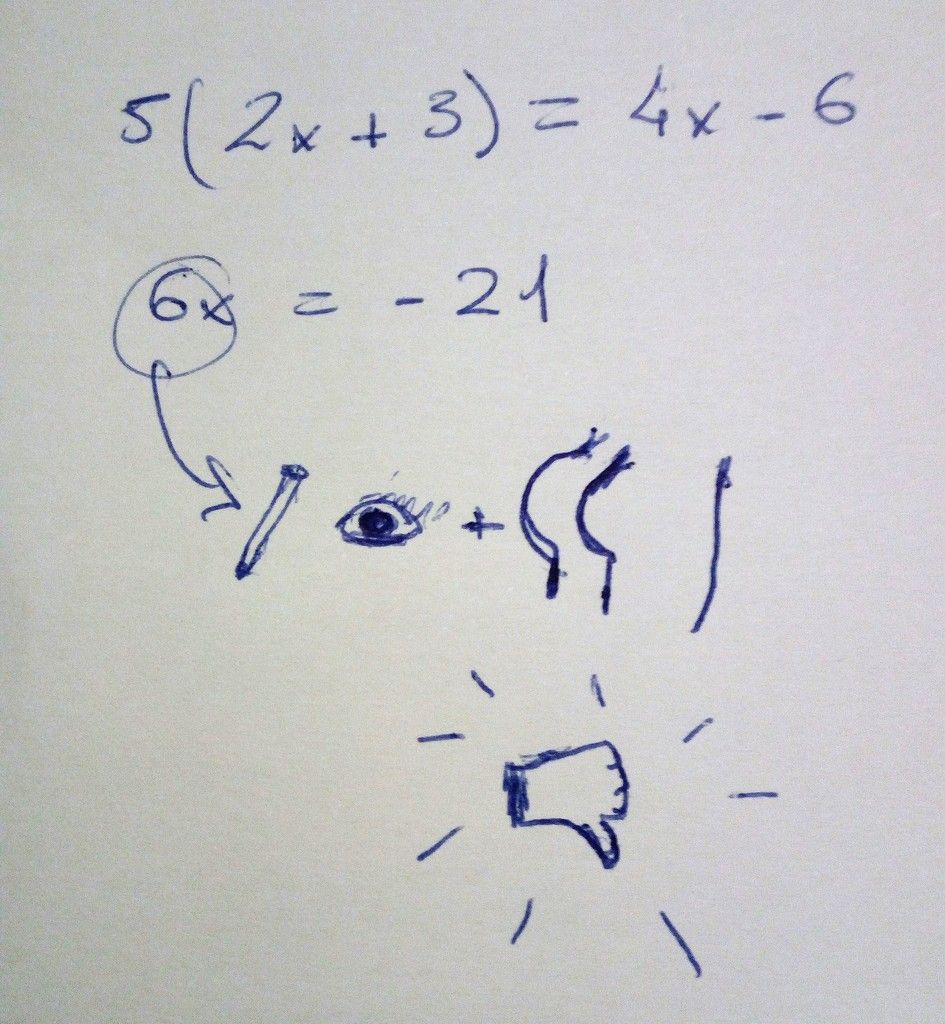 5(2x + 3) = 4x - 6
6x = - 21
+